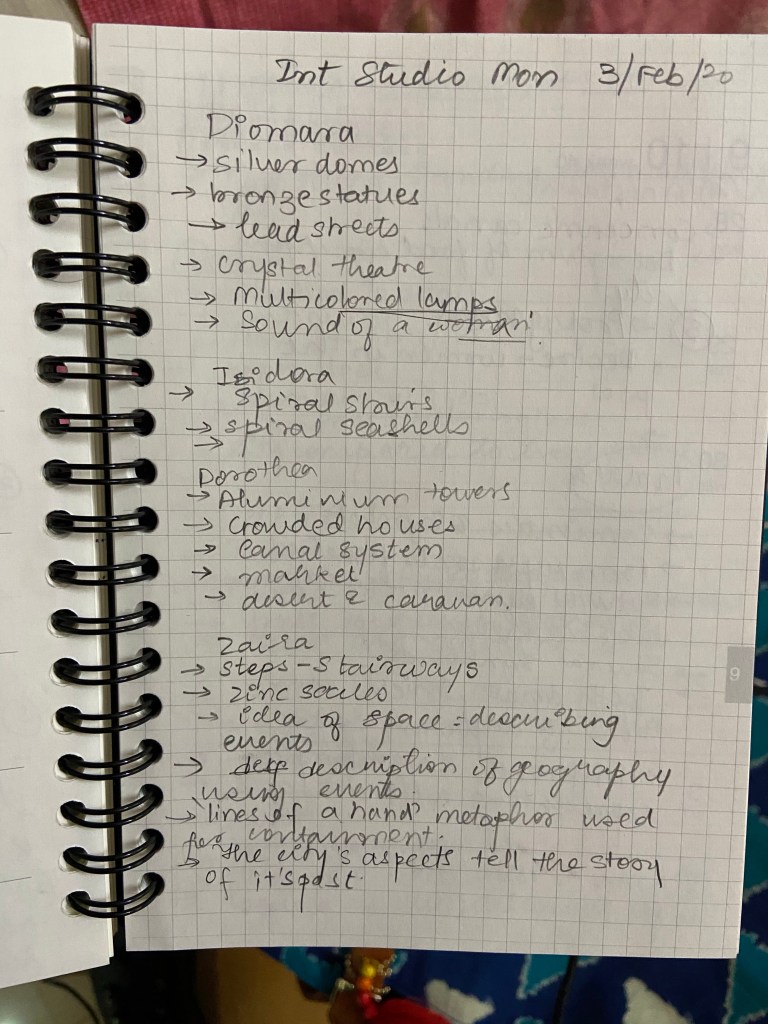 Int Studio Mon 3/Feb/20
Diomara
→ silver domes
→ bronze statues
→ lead streets
→ crystal theatre
→ Multicolored lamps
→ Sound of a woman
Isidora
→ spiral stairs
→ spiral seashells
→
Dorothea
→ Aluminium towers
→ Crowded houses
→ canal system
→ market
→ desert & caravan.
Zaira
→ steps - stairways
→ zinc scales
→ idea of space = describing
events
→ description of geography
using events.
→ 'lines of a hand' metaphor used
for containment.
→ the city's aspects tell the story
of it's past.
9